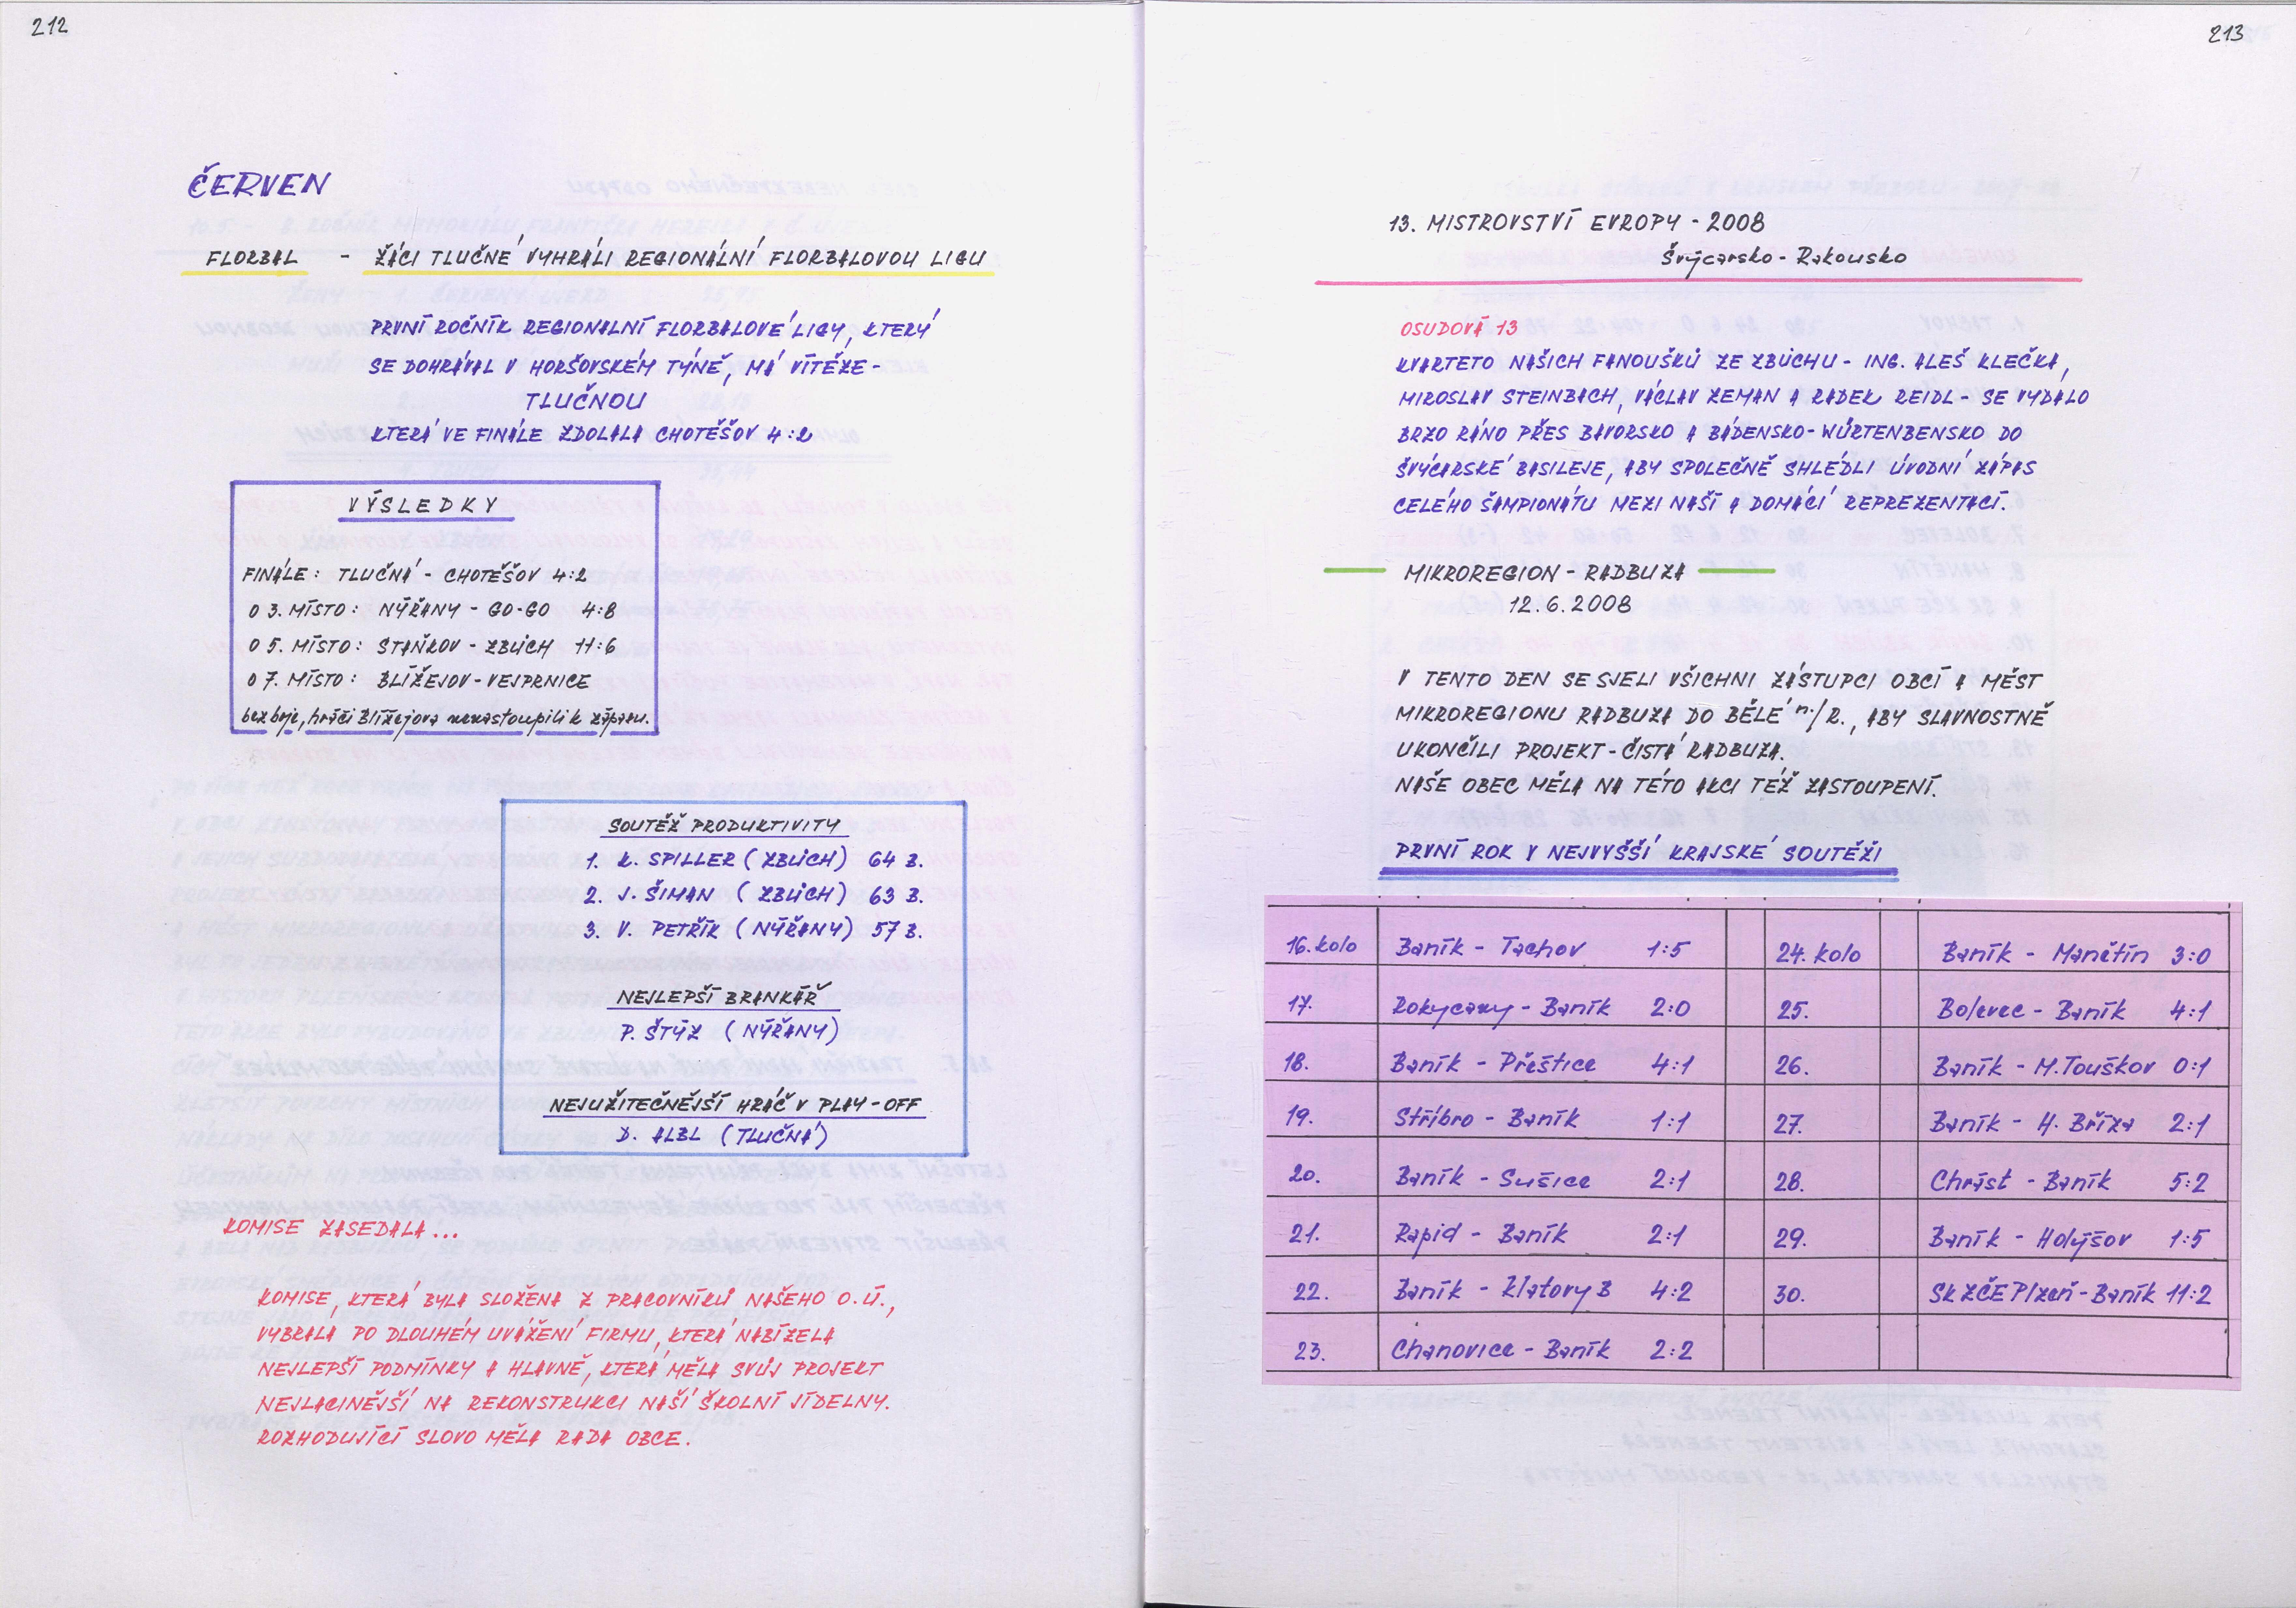 212
ČERVEN
FLORBAL - ŽÁCI TLUČNÉ VYHRÁLI REGIONÁLNÍ FLORBALOVOU LIGU
PRVNÍ ROČNÍK REGIONALNÍ FLORBALOVÉ LIGY, KTERÝ
SE DOHRÁVAL V HORŠOVSKÉM TÝNĚ, MÁ VÍTĚZE -
TLUČNOU
KTERÁ VE FINÁLE ZDOLALA CHOTĚŠOV 4:2
VÝSLEDKY
FINÁLE: TLUČNÁ - CHOTĚŠOV 4:2
O 3. MÍSTO: NÝŘANY - GO-GO 4:8
O 5. MÍSTO: STAŇKOV - ZBŮCH 11:6
O 7. MÍSTO: BLÍŽEJOV - VEJPRNICE
bez boje, hráči Blížejova nenastoupili k zápasu.
SOUTĚŽ PRODUKTIVITY
1. K. SPILLER (ZBŮCH) 64 B.
2. J. ŠIMAN (ZBŮCH) 63 B.
3. V. PETŘÍK (NÝŘANY) 57 B.
NEJLEPŠÍ BRANKÁŘ
P. ŠTÝZ (NÝŘANY)
NEJUŽITEČNĚJŠÍ HRÁČ V PLAY-OFF
D. ALBL (TLUČNÁ)
KOMISE ZASEDALA...
KOMISE, KTERÁ BYLA SLOŽENA Z PRACOVNÍKŮ NAŠEHO O.Ú.,
VYBRALA PO DLOUHÉM UVÁŽENÍ FIRMU, KTERÁ NABÍZELA
NEJLEPŠÍ PODMÍNKY A HLAVNĚ, KTERÁ MĚLA SVŮJ PROJEKT
NEJLACINĚJŠÍ NA REKONSTRUKCI NAŠÍ ŠKOLNÍ JÍDELNY.
ROZHODUJÍCÍ SLOVO MĚLA RADA OBCE.
213
13. MISTROVSTVÍ EVROPY - 2008
Švýcarsko - Rakousko
OSUDOVÁ 13
KVARTETO NAŠICH FANOUŠKŮ ZE ZBŮCHU - ING. ALEŠ KLEČKA,
MIROSLAV STEINBACH, VÁCLAV ZEMAN A RADEK REIDL - SE VYDALO
BRZO RÁNO PŘES BAVORSKO A BÁDENSKO-WÜRTENBENSKO DO
ŠVÝCARSKÉ BASILEJE, ABY SPOLEČNĚ SHLÉDLI ÚVODNÍ ZÁPAS
CELÉHO ŠAMPIONÁTU MEZI NAŠÍ A DOMÁCÍ REPREZENTACÍ.
MIKROREGION - RADBUZA
12.6.2008
V TENTO DEN SE SJELI VŠICHNI ZÁSTUPCI OBCÍ A MĚST
MIKROREGIONU RADBUZA DO BĚLÉ n./R., ABY SLAVNOSTNĚ
UKONČILI PROJEKT - ČISTÁ RADBUZA.
NAŠE OBEC MĚLA NA TÉTO AKCI TÉŽ ZASTOUPENÍ.
PRVNÍ ROK V NEJVYŠŠÍ KRAJSKÉ SOUTĚŽI
16. kolo Baník - Tachov 1:5 24. kolo Baník - Manětín 3:0
17. Rokycany - Baník 2:0 25. Bolevec - Baník 4:1
18. Baník - Přeštice 4:1 26. Baník - M. Touškov 0:1
19. Stříbro - Baník 1:1 27. Baník - H. Bříza 2:1
20. Baník - Sušice 2:1 28. Chrást - Baník 5:2
21. Rapid - Baník 2:1 29. Baník - Holýšov 1:5
22. Baník - Klatovy B 4:2 30. SK ZČE Plzeň - Baník 11:2
23. Chanovice - Baník 2:2